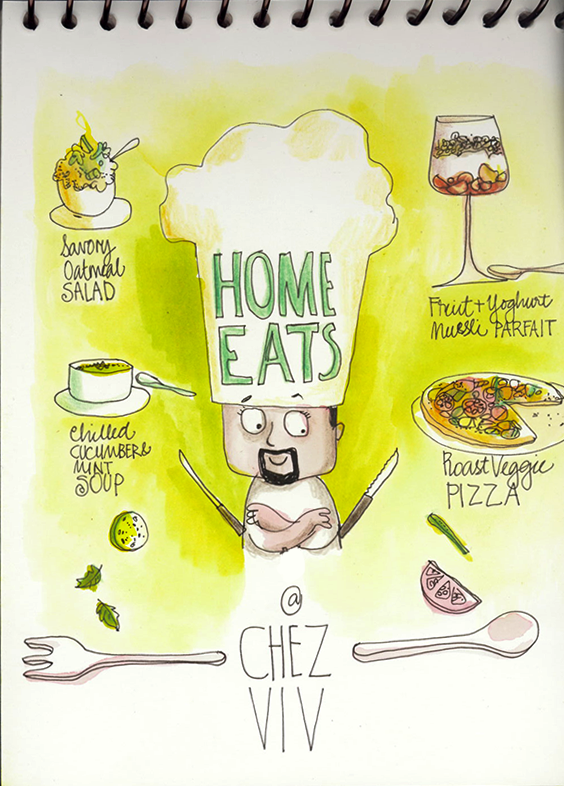 HOME
EATS
Savory
Oatmeal
SALAD
Fruit + Yoghurt
Muesli PARFAIT
Chilled
CUCUMBER &
MINT
SOUP
Roast Veggie
PIZZA
@
CHEZ
VIV